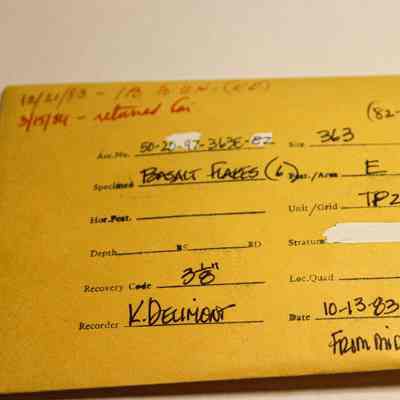 12/21/83 -
3/15/84 - returned
(82-
Acc.No. 50-20-97-363E-82 Site 363
Specimen BASALT FLAKES (6) Sect./Area E
Hor.Post. Unit/Grid TP2
Depth BS BD Stratum
Recovery Code 3 1/8" Loc.Quad
Recorder K. DELIMONT Date 10-13-83
FROM MID